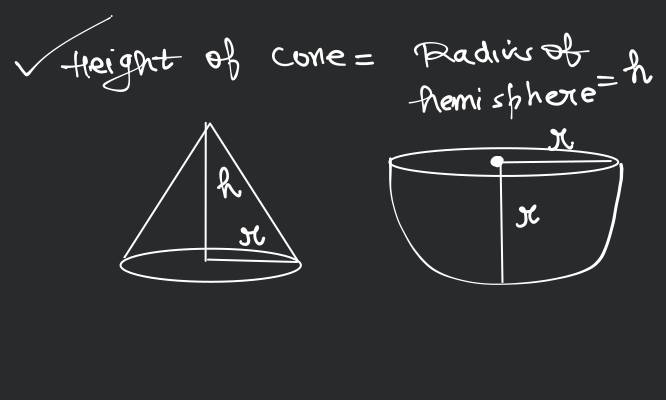 Height of cone = Radius of
hemisphere = h
r
h
r
r